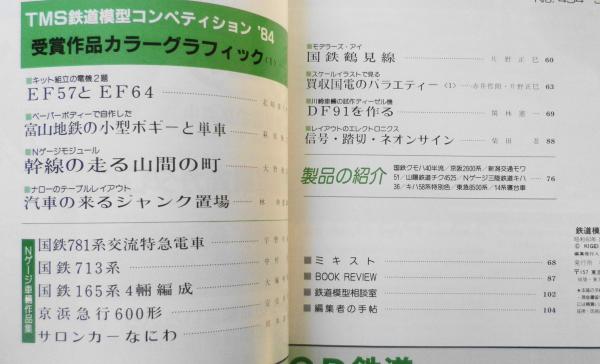 TMS鉄道模型コンペティション '84
受賞作品カラーグラフィック〈1〉
■キット組立の電機2題
EF57とEF64
■ペーパーボディーで自作した
富山地鉄の小型ボギーと単車
■Nゲージモジュール
幹線の走る山間の町
■ナローのテーブルレイアウト
汽車の来るジャンク置場
Nゲージ車輛作品集
国鉄781系交流特急電車
国鉄713系
国鉄165系4輛編成
京浜急行600形
サロンカーなにわ
■モデラーズ・アイ
国鉄鶴見線 片野正巳 60
■スケールイラストで見る
買収国電のバラエティー〈1〉 赤井哲朗・片野正巳 63
■川崎車輛の試作ディーゼル機
DF91を作る 69
■レイアウトのエレクトロニクス
信号・踏切・ネオンサイン 88
製品の紹介
国鉄クモハ40半流／京阪2600系／新潟交通モワ
51／山陽鉄道チク4525／Nゲージ三陸鉄道キハ
36／キハ58系特別色／東急8500系／14系寝台車
76
■ミキスト 68
■BOOK REVIEW 87
■鉄道模型相談室 102
■編集者の手帖 104